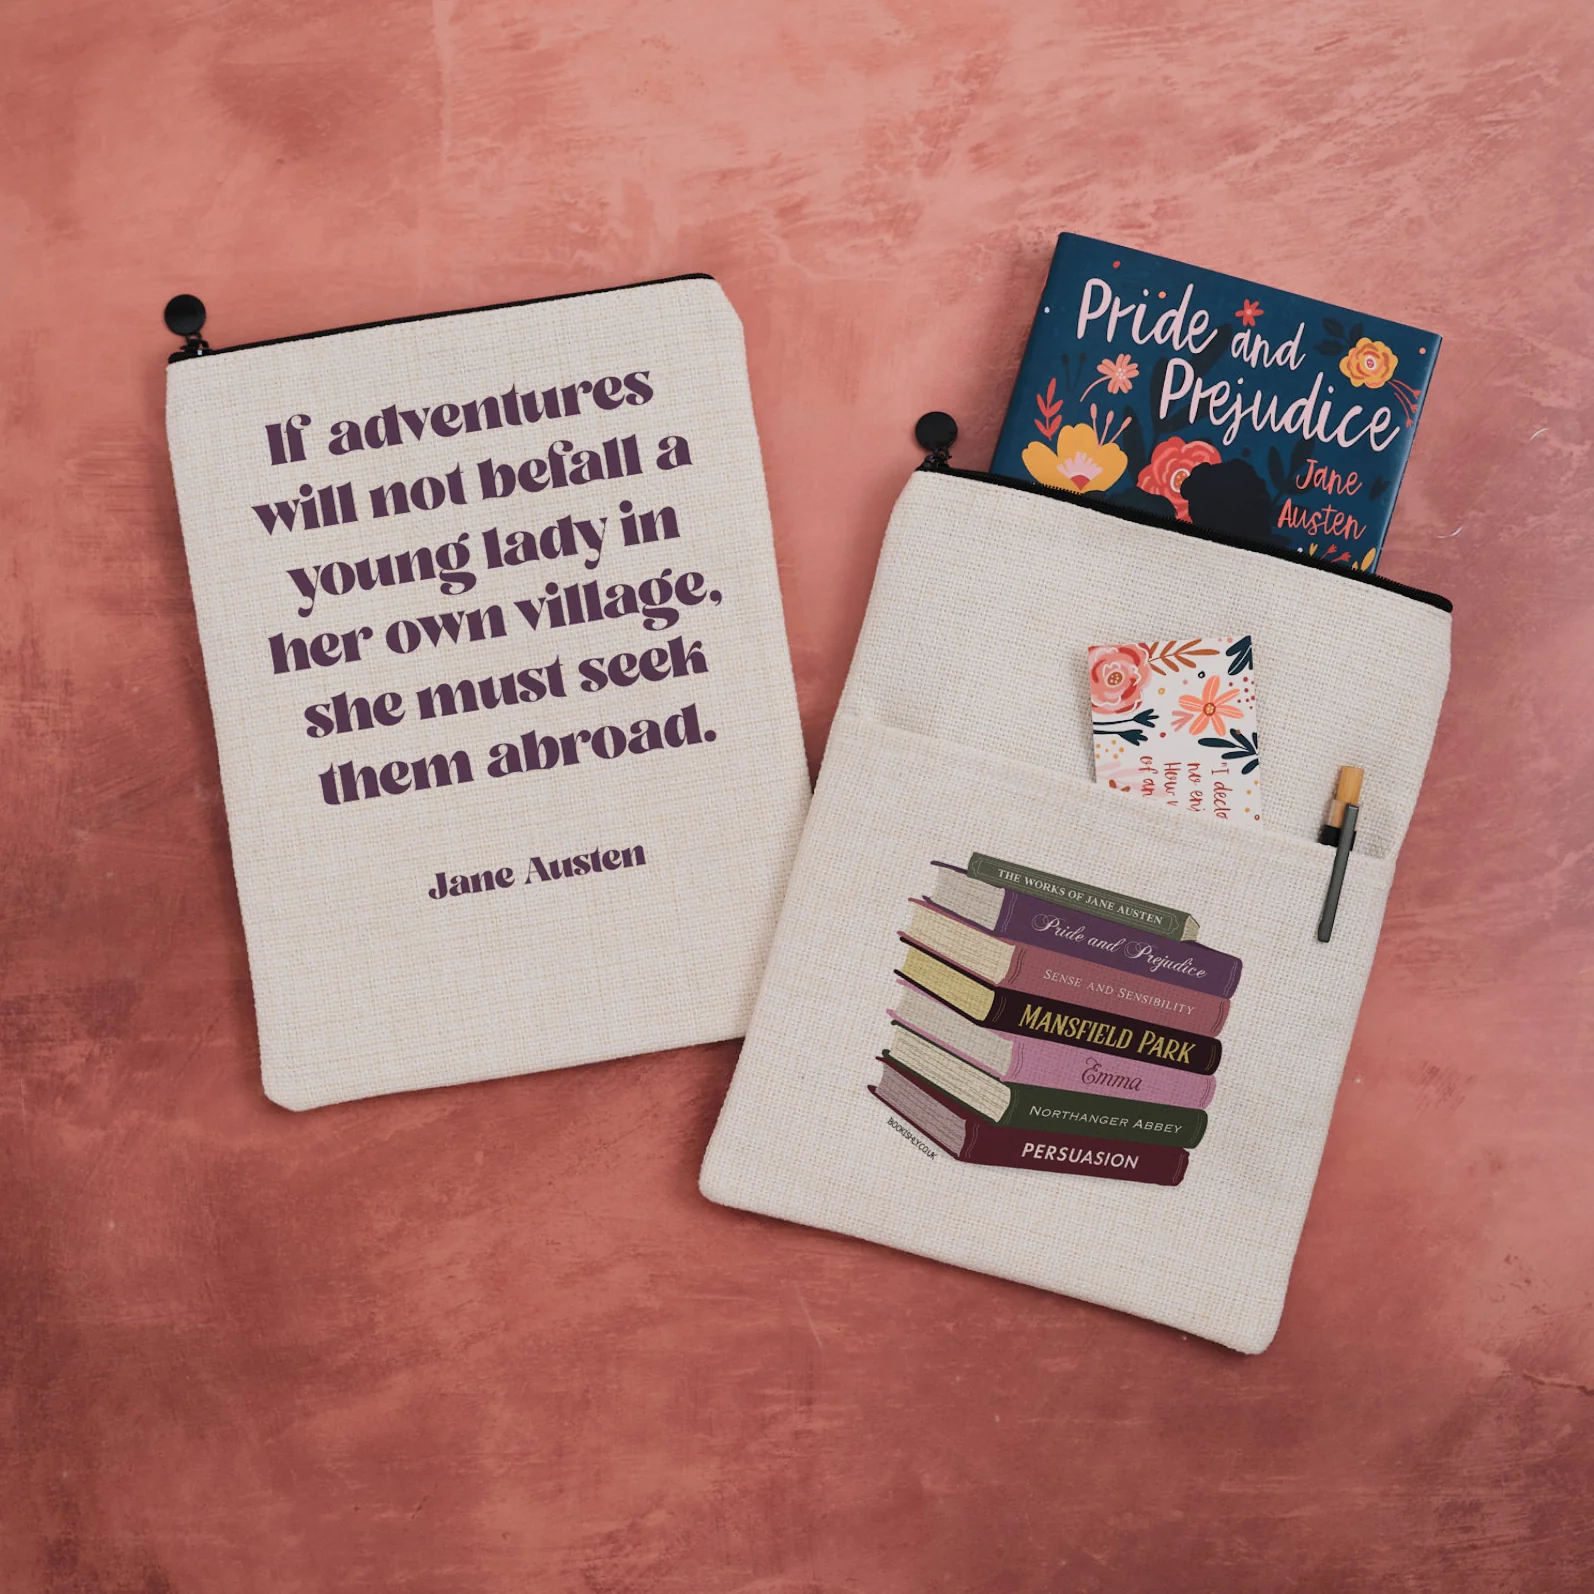 If adventures
will not befall a
young lady in
her own village,
she must seek
them abroad.
Jane Austen
Pride and
Prejudice
Jane
Austen
"I decla
no enj
How
of an
THE WORKS OF JANE AUSTEN
Pride and Prejudice
SENSE AND SENSIBILITY
MANSFIELD PARK
Emma
NORTHANGER ABBEY
PERSUASION
BOOKISHLY.CO.UK